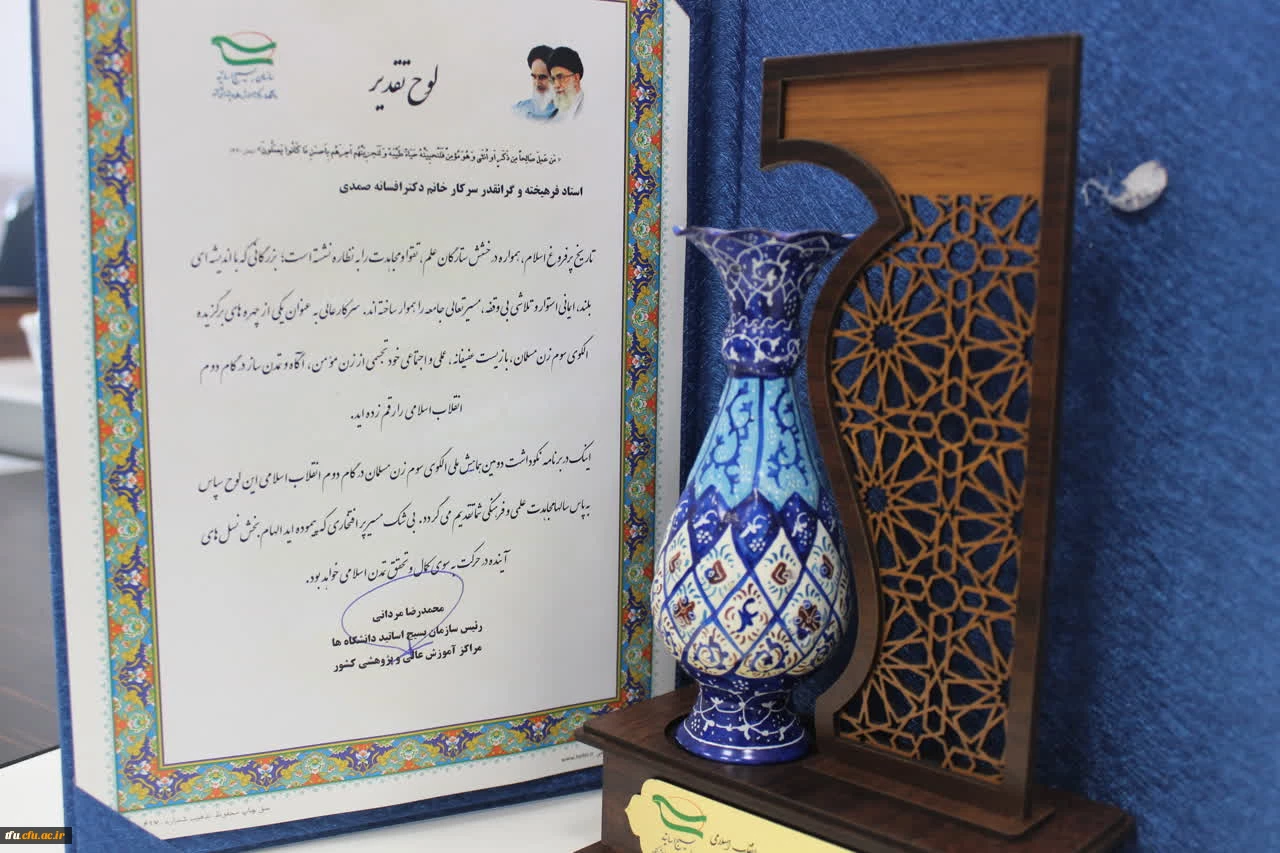 لوح تقدیر
«مَن عَمِلَ صَالِحاً مِن ذَكَرٍ أَو أُنثَى وَ هُوَ مُؤمِنٌ فَلَنُحيِيَنَّهُ حَيَاةً طَيِّبَةً وَ لَنَجزِيَنَّهُم أَجرَهُم بِأَحسَنِ مَا كَانُوا يَعمَلُونَ»
استاد فرهیخته و گرانقدر سرکار خانم دکتر افسانه صمدی
تاریخ پرفروغ اسلام، همواره درخشش ستارگان علم، تقوا و مجاهدت را به نظاره نشسته است؛ بزرگانی که با اندیشه ای
بلند، ایمانی استوار و تلاشی بی وقفه، مسیر تعالی جامعه را هموار ساخته اند. سرکارعالی به عنوان یکی از چهره های برگزیده
الگوی سوم زن مسلمان، با زیست عفیفانه، علمی و اجتماعی خود تجسمی از زن مؤمن، آگاه و تمدن ساز در گام دوم
انقلاب اسلامی را رقم زده اید.
اینک در برنامه نکوداشت دومین همایش ملی الگوی سوم زن مسلمان در گام دوم انقلاب اسلامی این لوح سپاس
به پاس سالها مجاهدت علمی و فرهنگی شما تقدیم می گردد. بی شک مسیر پر افتخاری که پیموده اید الهام بخش نسل های
آینده در حرکت به سوی کمال و تحقق تمدن اسلامی خواهد بود.
محمدرضا مردانی
رئیس سازمان بسیج اساتید دانشگاه ها
مراکز آموزش عالی و پژوهشی کشور
سازمان بسیج اساتید
حق چاپ محفوظ
tfu.cfu.ac.ir